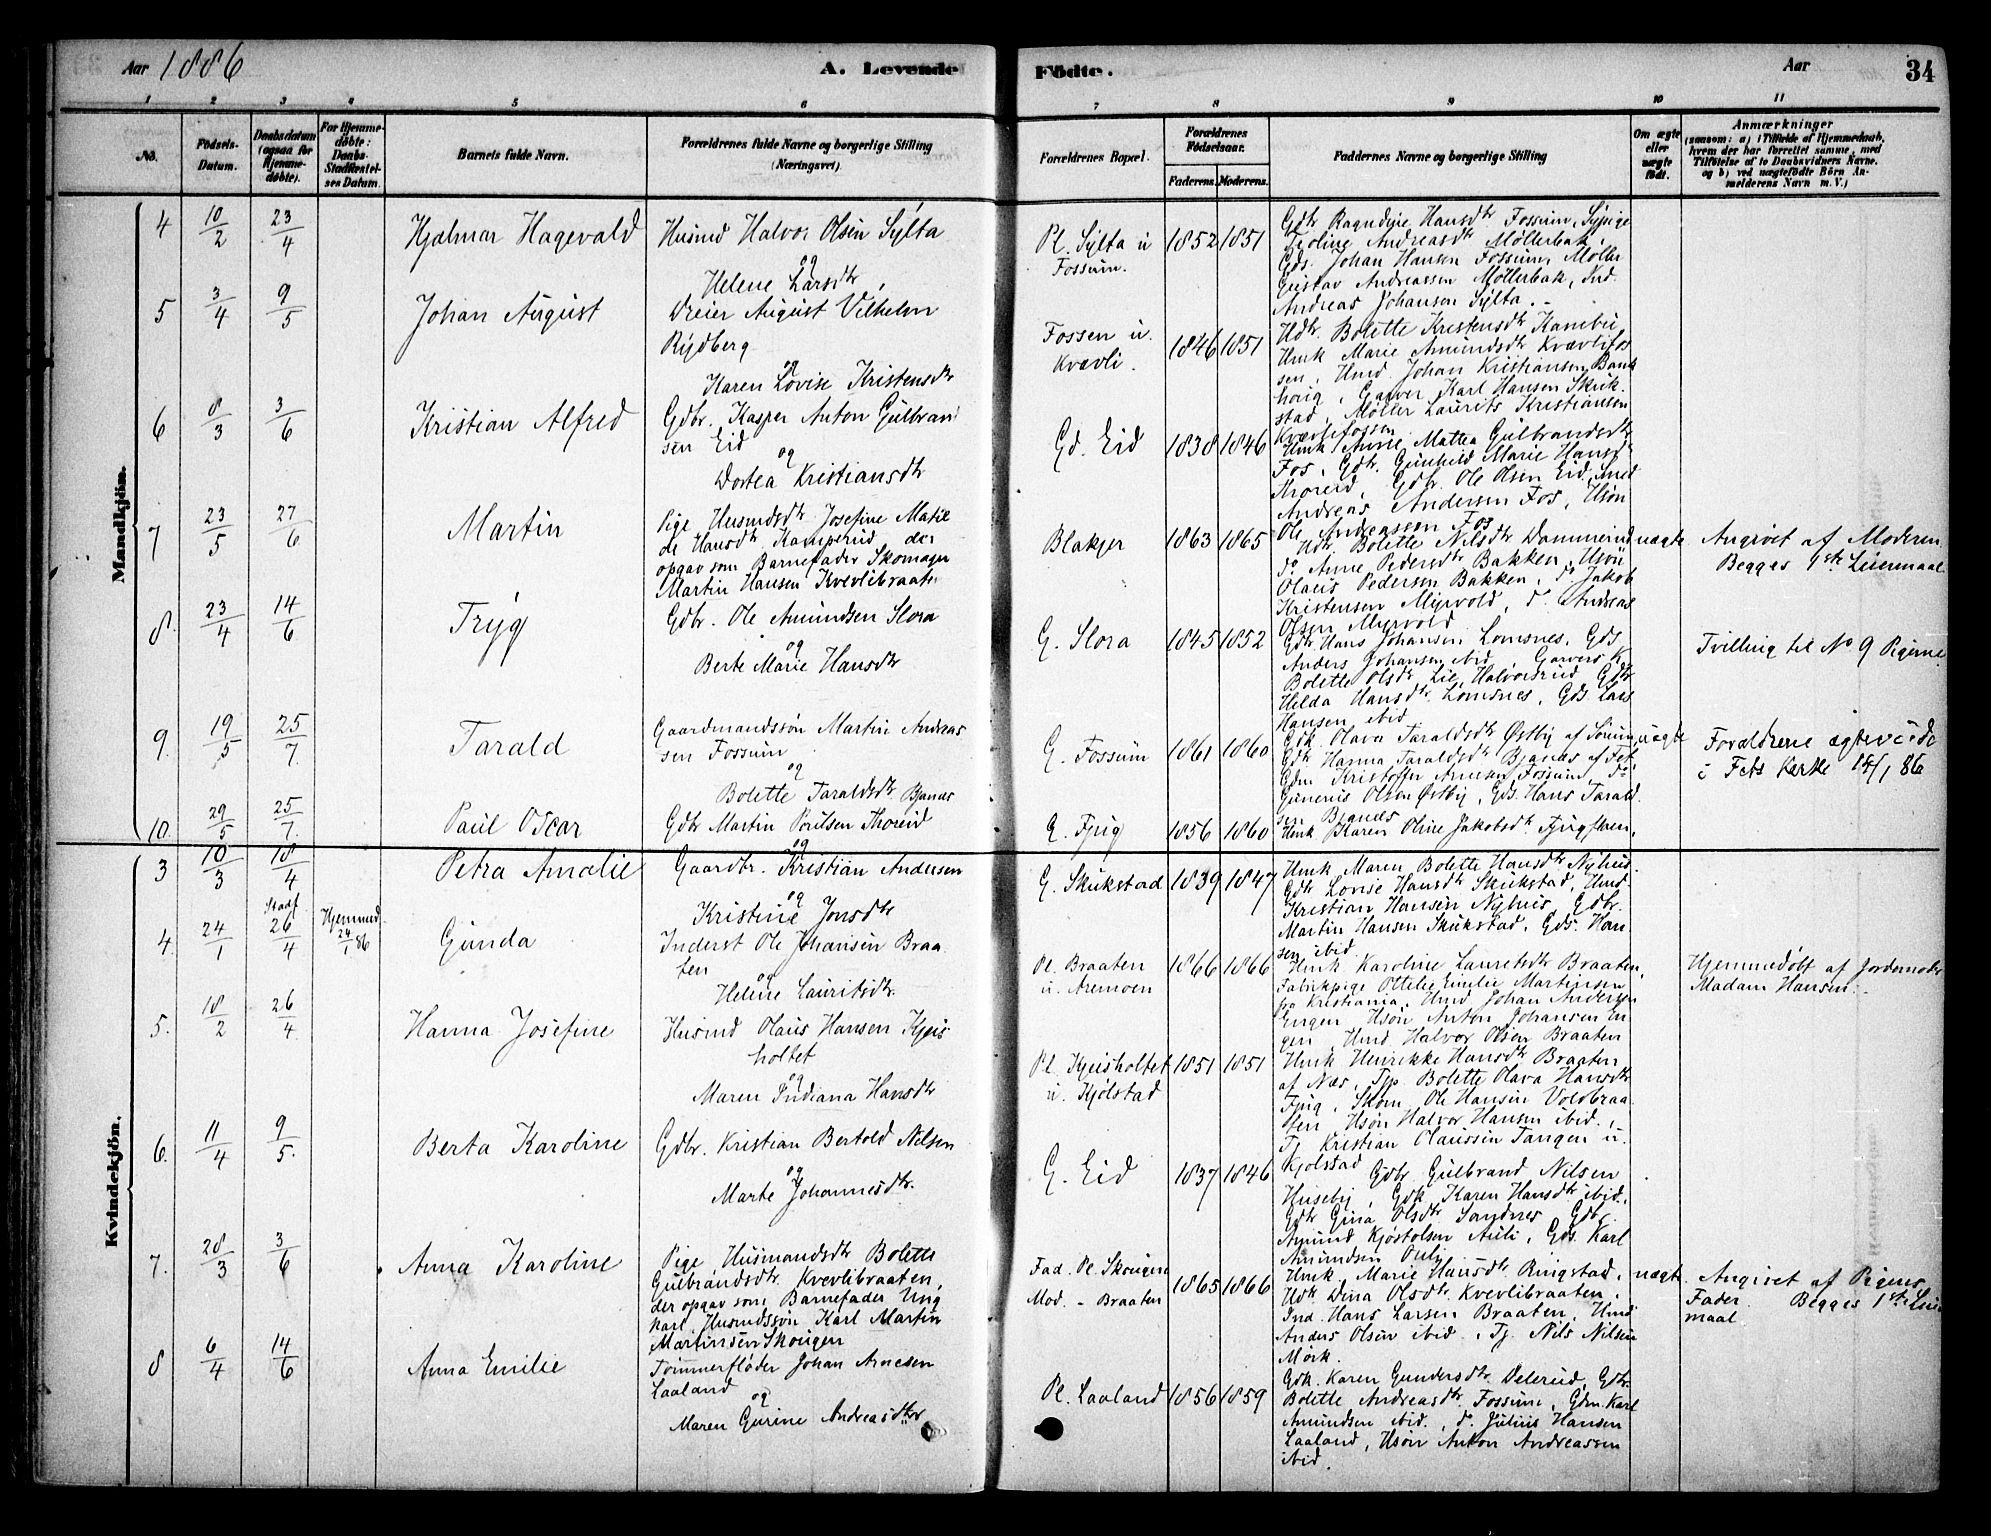 Aar 1886
A. Levende Fødte.
Aar
34
1 2 3 4 5 6 7 8 9 10 11
No.
Fødsels-
Datum.
Daabsdatum
(ogsaa for
Hjemme-
døbte).
For Hjemme-
døbte:
Daabs-
Stadfæstel-
ses Datum.
Barnets fulde Navn.
Forældrenes fulde Navne og borgerlige Stilling
(Næringsvei)
Forældrenes Bopæl.
Forældrenes
Fødselsaar.
Faderens. Moderens.
Faddernes Navne og borgerlige Stilling
Om ægte
eller
uægte
født.
Anmærkninger
(saasom: a) i Tilfælde af Hjemmedaab,
hvem der har forrettet samme, med
Tilføielse af to Daabsvidners Navne.
og b) ved uægtefødte Børn An-
melderens Navn m. V.)
Mandkjøn.
4 10/2 23/4 Hjalmar Hagevald
Husmd Halvor Olsen Sylta
og
Helene Larsdtr
Pl. Sylta u
Fossum.
1852 1851
Gdtr Ragndine Hansdtr Fossum,
Andreasdtr Møllerbak,
Gds. Johan Hansen Fossum, Møller
Gustav Andreassen Møllerbak, Ind.
Andreas Johansen Sylta.
5 3/4 9/5 Johan August
Dreier August Vilhelm
Rydberg
og
Karen Lovise Kristensdtr
Fossen u.
Kvevli.
1846 1851
Udtr. Bolette Kristensdtr
Hmk Marie Amundsdtr Kvævlifos
sen, Hmd. Johan Kristiansen
Garver Karl Hansen Skuk
stad, Møller Laurits Kristiansen
Kvævlefossen
6 8/3 3/6 Kristian Alfred
Gdbr. Kasper Anton Gulbrand
sen Eid
og
Dortea Kristiansdtr
Gd. Eid
1838 1846
Hmk Anne Mattea Gulbrandsdtr
Fos, Gdtr. Gunhild Marie Hansdtr
Thoreid, Gdbr. Ole Olsen Eid, Smed
Andreas Andersen Fos, Usøn
Ole Andreassen Fos
7 23/5 27/6 Martin
Pige Husmdsdtr Josefine Matil
de Hansdtr Kamperud der
opgav som Barnefader Skomager
Martin Hansen Kvevlibraaten
Blakjer
1863 1865
Udtr. Bolette Nilsdtr Dammerud
do Anne Pedersdtr Bakken, Usøn
Olaus Pedersen Bakken, do Jakob
Kristensen Myrvold, do. Andreas
Olsen Myrvold
uægte
Angivet af Moderen
Begges 1ste Leiermaal
8. 23/4 14/6 Tryg
Gdbr. Ole Amundsen Slora
og
Berte Marie Hansdtr
G. Slora
1845 1852
Gdtr Hans Johansen Lomsnes, Gds
Anders Johansen ibid, Garvers K.
Bolette Olsdtr Lie, Halvorsrud, Gdtr
Helda Hansdtr Lomsnes, Gds Lars
Hansen ibid
Tvilling til No 9 Pigerne.
9. 19/5 25/7 Tarald
Gaardmandssøn Martin Andreas
sen Fossum
og
Bolette Taraldsdtr Bjanes
G. Fossum
1861 1860
Gdk. Olava Taraldsdtr Østby af Sørum,
Gdtr Hanna Taraldsdtr Bjanes af Fet,
Gdm Kristoffer Arnesen Fossum do
Gunerius Olsen Østby, Gds. Hans Tarald
sen Bjanes
uægte
Forældrene ægteviede
i Fets Kirke
10. 29/5 25/7 Paul Oscar
Gdbr Martin Poulsen Thoreid
og
G. Fjug
1856 1860
Hmk Karen Oline Jakobsdtr
Kvindekjøn.
3 10/3 18/4 Petra Amalie
Gaardbr. Kristian Andersen
og
Kristine Jonsdtr
G. Skukstad
1839 1847
Hmk Maren Bolette Hansdtr Nyhus
Gdtr Lovise Hansdtr Skukstad, Hmd.
Kristian Hansen Nyhus, Gdbr.
Martin Hansen Skukstad, Gds. Han
sen ibid
4. 24/1 Stadf 26/4 Hjemmed 24/1 86 Gunda
Inderst Ole Johansen Braa
ten
og
Helene Lauritsdtr.
Pl. Braaten
u. Aremoen
1866 1866
Hmk Karoline Lauretsdtr Braaten,
Fabrikpige Ottilie Emilie Martinsen
fra Kristiania, Hmd Johan Andersen
Engen, Usøn Anton Johansen En
gen, Hmd. Halvor Olsen Braaten
Hjemmedøbt af Jordemoder
Madam Hansen.
5. 18/2 26/4 Hanna Josefine
Husmd Olaus Hansen Kjeis
holtet
og
Maren Indiana Hansdtr
Pl. Kjeisholtet
u. Kjølstad
1851 1851
Hmk Henrikke Hansdtr Braaten
af Næs, Tjp. Bolette Olava Hansdtr
Fjug, Skom. Ole Hansen Voldbraa
ten, Usøn Halvor Hansen ibid.,
Tj Kristian Olaussen Tangen u.
Kjølstad
6. 11/4 9/5. Berta Karoline
Gdbr. Kristian Bertold Nilsen
og
Marte Johannesdtr.
G. Eid
1837 1846
Gdbr Gulbrand Nilsen
Huseby, Gdk Karen Hansdtr ibid.,
Gdtr Gina Olsdtr Sandnes, Gdbr.
Amund Kjøstolsen Auli, Gds. Karl
Amundsen Auli
7. 28/3 3/6 Anna Karoline
Pige, Husmandsdtr Bolette
Gulbrandsdtr. Kvevlibraaten,
der opgav som Barnefader Ung
karl Husmdssøn Karl Martin
Martinsen Skougen
Fad. Pl. Skougen
Mod. - Braaten
1865 1866
Hmk. Marie Hansdtr. Ringstad,
Udk Dina Olsdtr. Kvevlibraaten,
Ind. Hans Larsen Braaten, Hmd
Anders Olsen ibid., Tj. Nils Nilsen
Mørk.
uægte
Angivet af Pigens
Fader. Begges 1ste Leier
maal
8 6/4 14/6 Anna Emilie
Tømmerfløder Johan Arnesen
Laaland
og
Maren Gurine Andreasdtr
Pl. Laaland
1856 1859
Gdk. Karen Gundersdtr. Delerud, Gdtr.
Bolette Andreasdtr Fossum, Gdm. Karl
Amundsen ibid., do Julius Hansen
Laaland, Usøn Anton Andreassen
ibid.